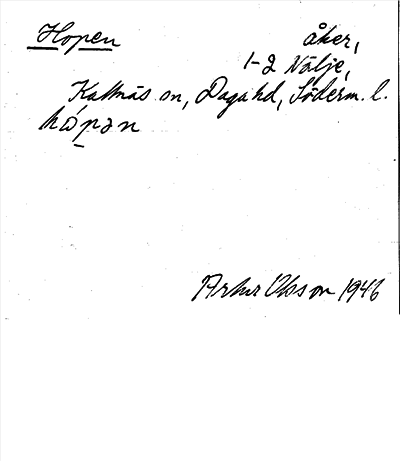 Hopen åker,
1-2 Nälje,
Kattnäs sn, Daga hd, Söderm. l.
hópən
Artur Olsson 1946